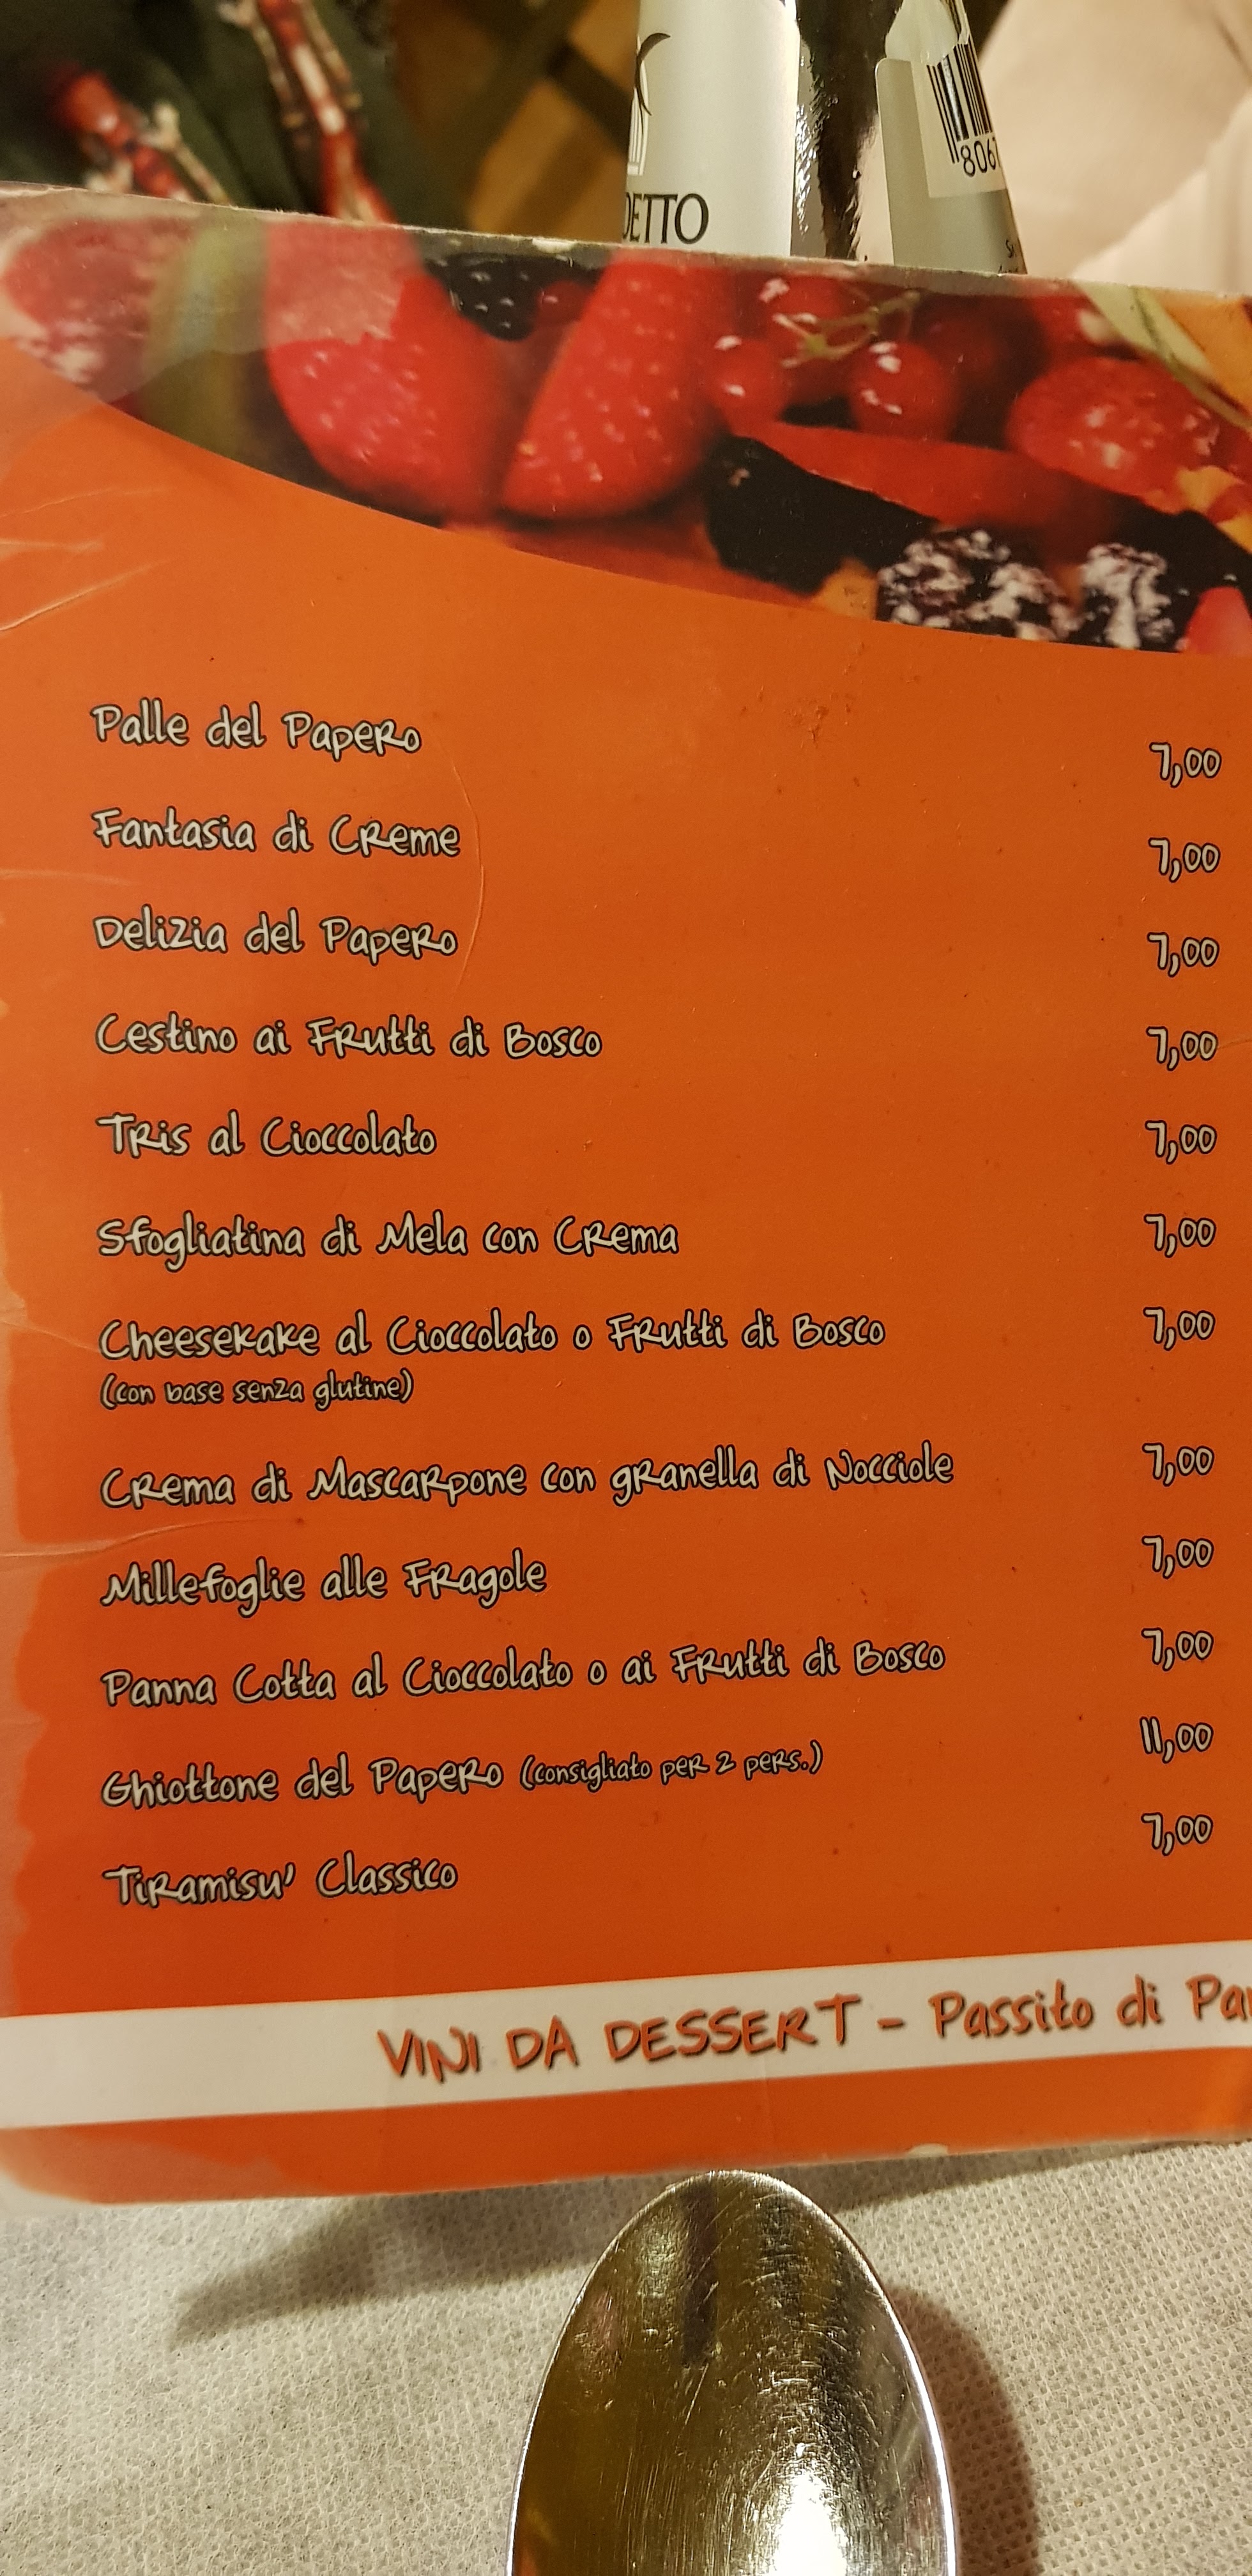 DETTO
Palle del Papero 7,00
Fantasia di Creme 7,00
Delizia del Papero 7,00
Cestino ai Frutti di Bosco 7,00
Tris al Cioccolato 7,00
Sfogliatina di Mela con Crema 7,00
Cheesekake al Cioccolato o Frutti di Bosco 7,00
(con base senza glutine)
Crema di Mascarpone con granella di Nocciole 7,00
Millefoglie alle Fragole 7,00
Panna Cotta al Cioccolato o ai Frutti di Bosco 7,00
Ghiottone del Papero (consigliato per 2 pers.) 11,00
Tiramisu' Classico 7,00
VINI DA DESSERT - Passito di Pa